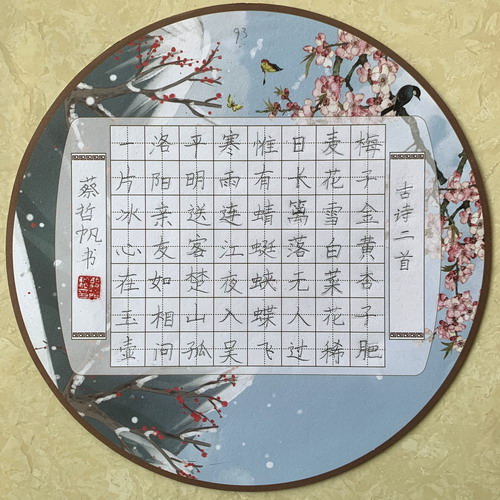 93
古诗二首
梅子金黄杏子肥
麦花雪白菜花稀
日长篱落无人过
惟有蜻蜓蛱蝶飞
寒雨连江夜入吴
平明送客楚山孤
洛阳亲友如相问
一片冰心在玉壶
蔡哲帆书